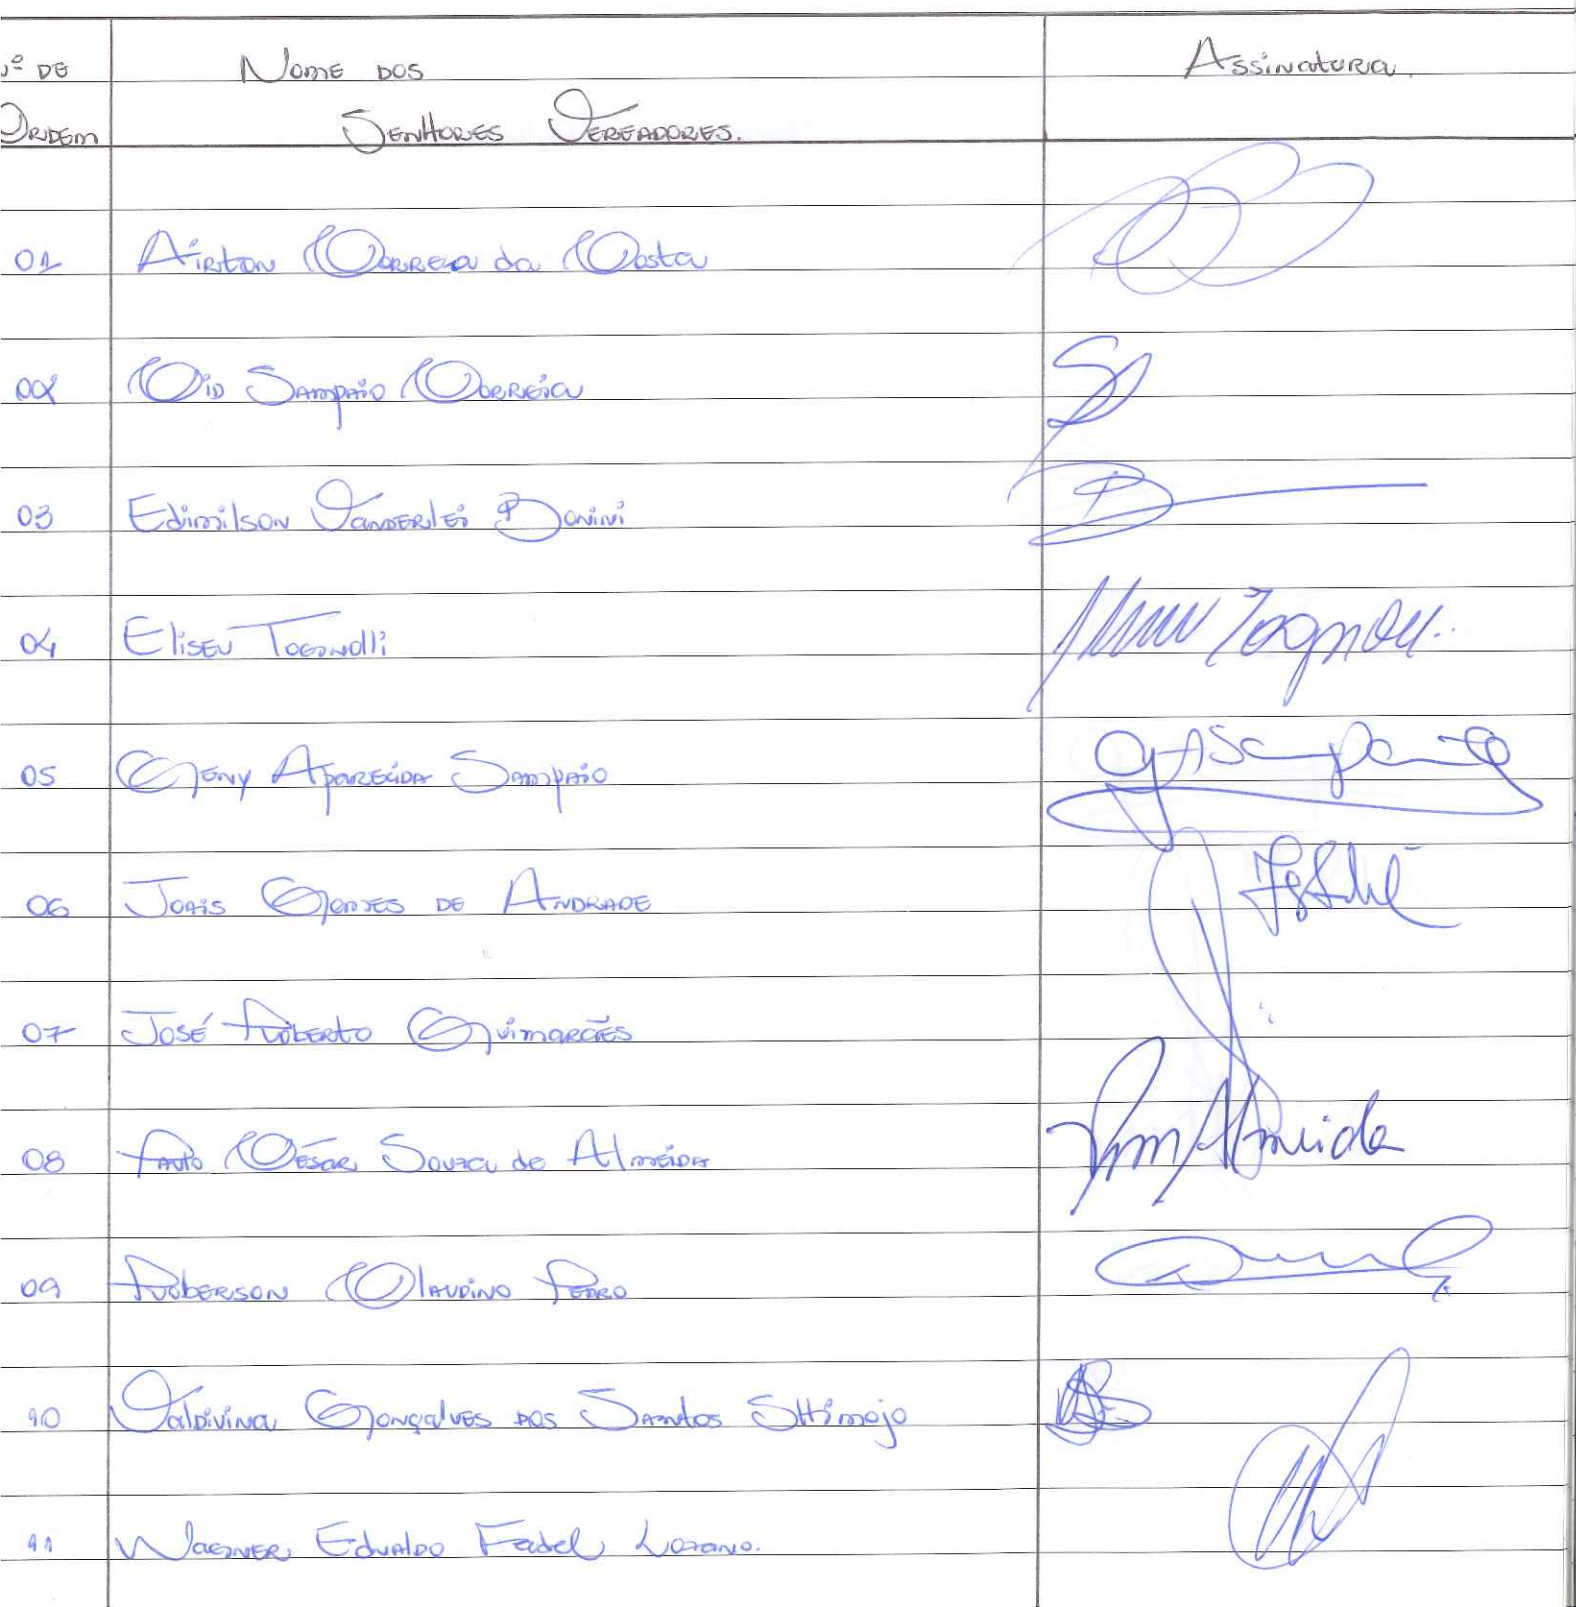 Nº DE Nome dos Assinatura
Ordem Senhores Vereadores.
01 Airton Correia da Costa
02 Cid Sampaio Correia
03 Edimilson Vanderlei Bonini
04 Eliseu Tognolli
05 Geny Aparecida Sampaio
06 Joais Gomes de Andrade
07 José Roberto Guimarães
08 Paulo César Souza de Almeida Almeida
09 Roberson Claudino Pedro
10 Valdivina Gonçalves dos Santos Shimojo
11 Wagner Edvaldo Fadel Lozano.